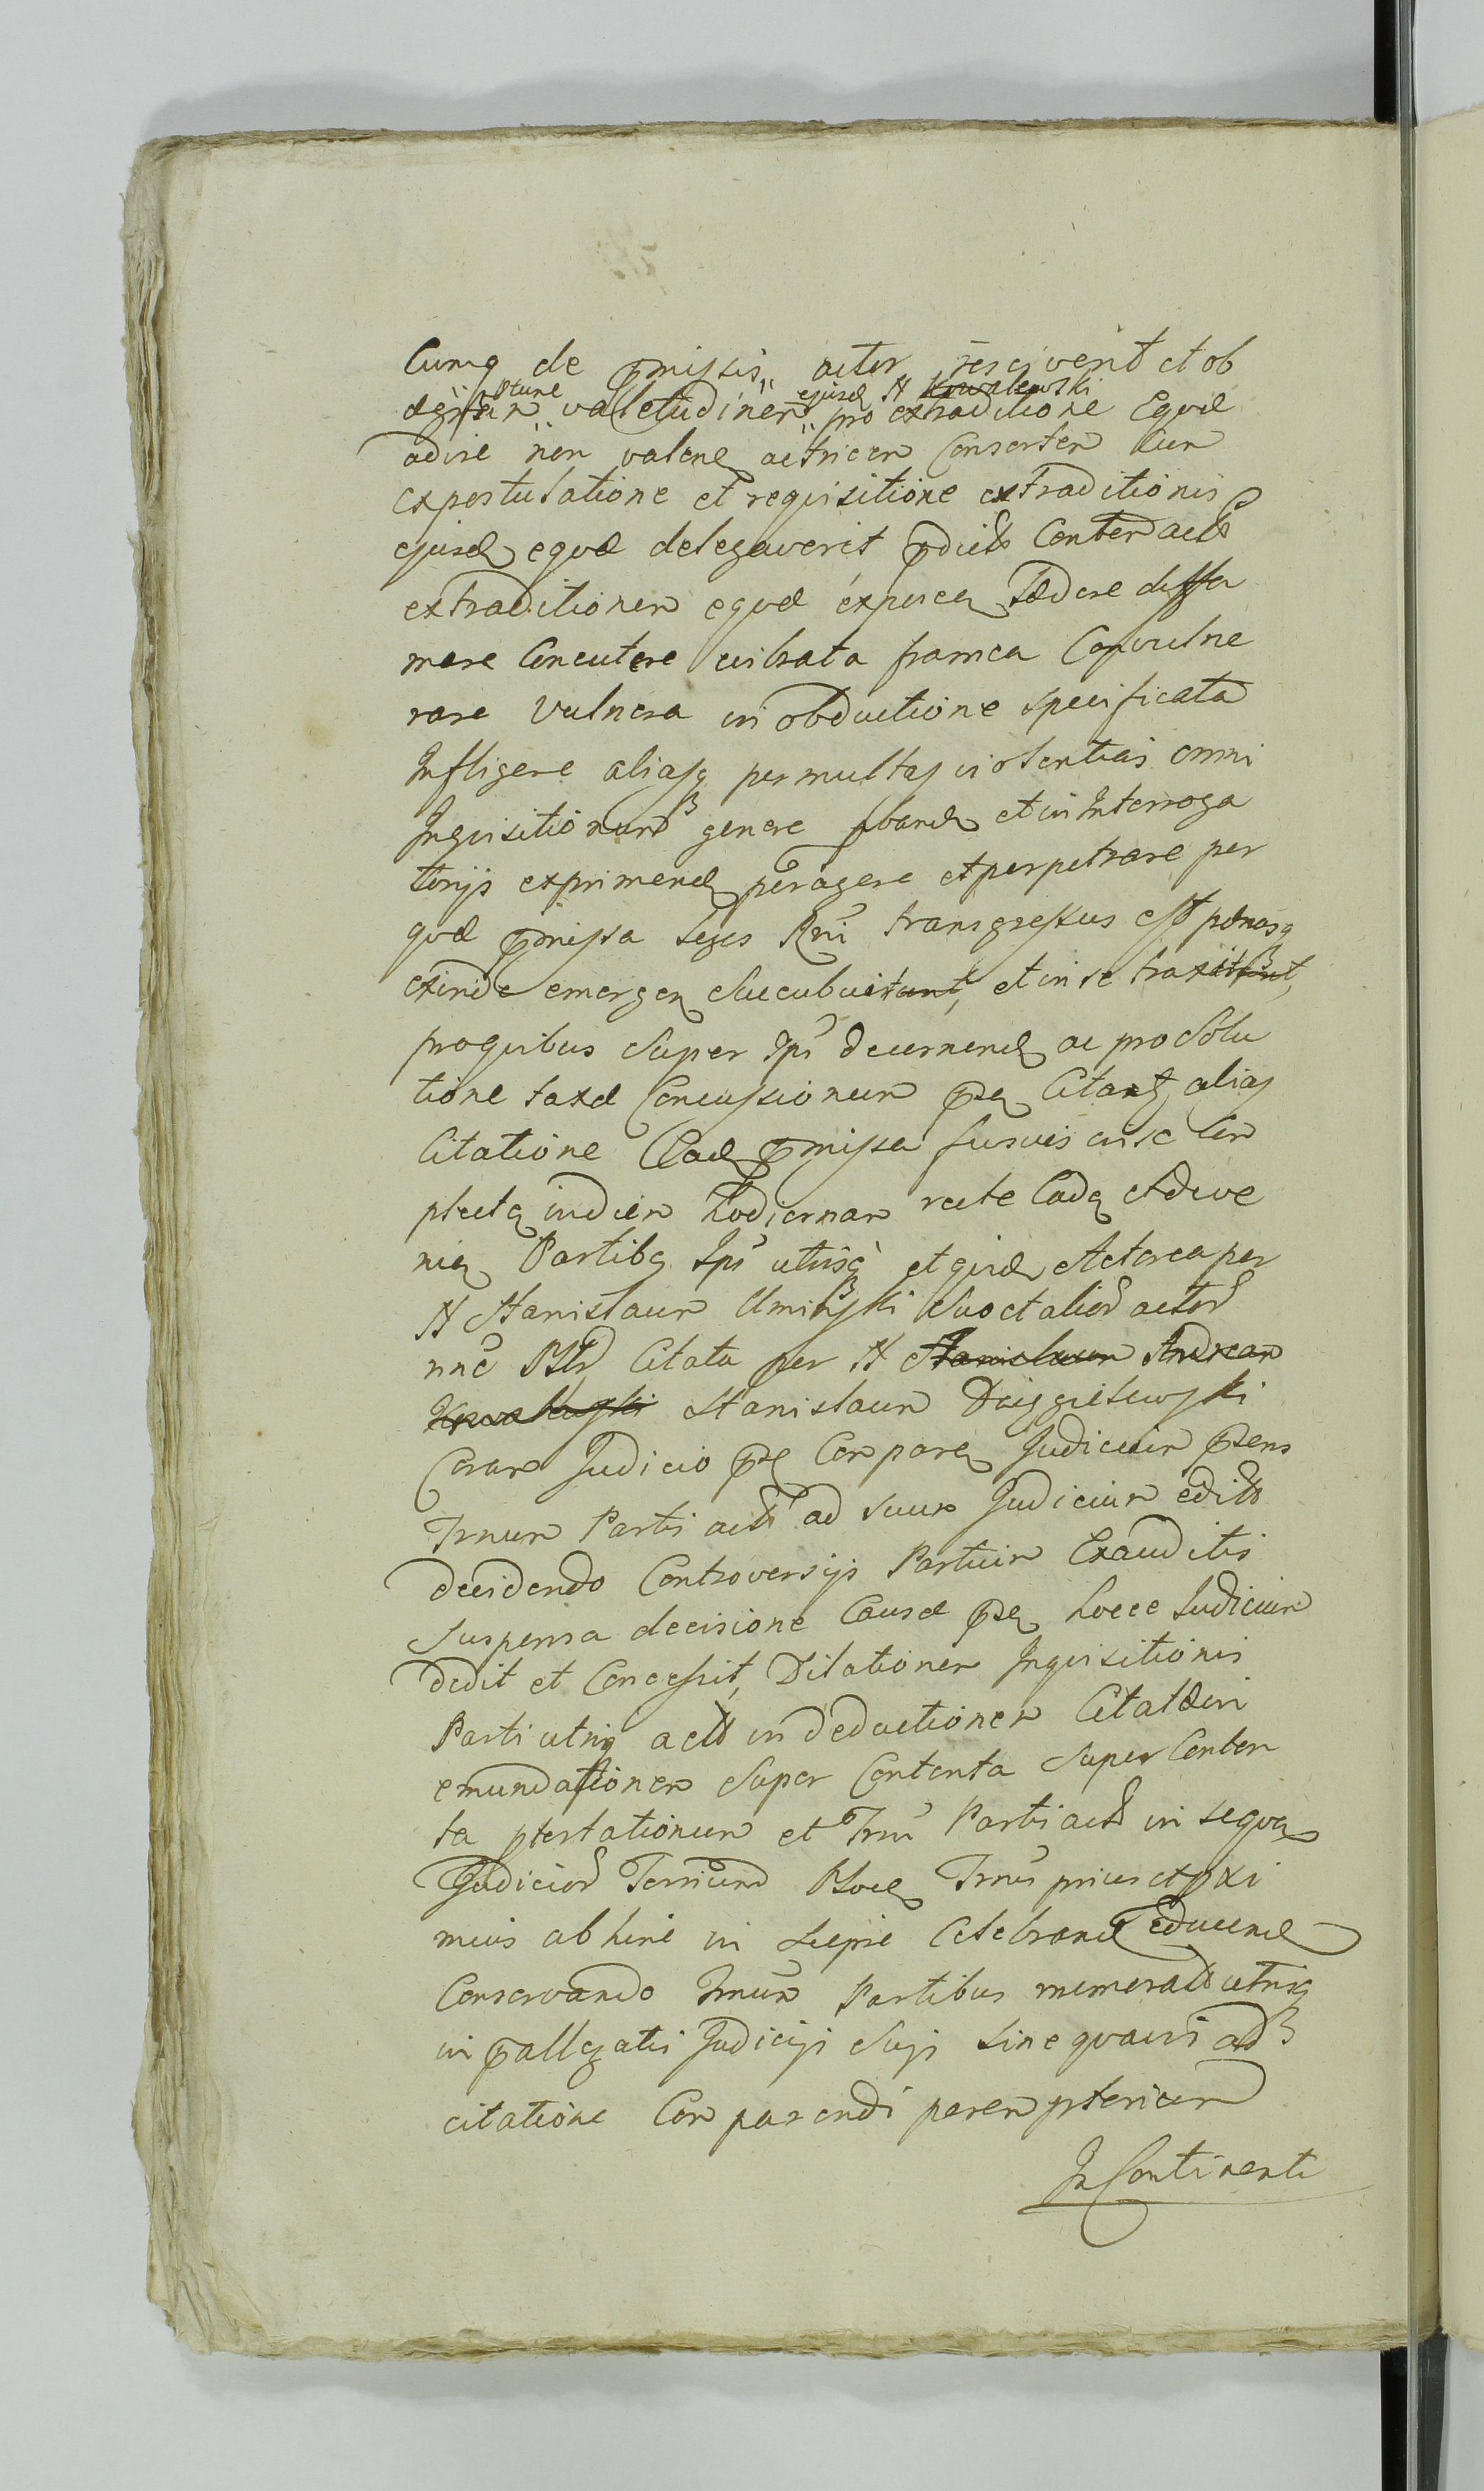 Cumq de pmissis actor rescivent et ob
tunc ejusd N Kowalewski
aegram valetudinem pro extraditione Equae
adire non valens actricem Consortem Cum
expostulatione et requisitione extraditionis
ejusd equae delegaverit pdicts Conter acts
extraditionem equae exposcen laedere diffa
mare Concutere vibrata framea Convulne
rare vulnera in obductione specificata
Infligere aliasq permultas violentias omni
Inquisitionum genere pband et in Interroga
torijs exprimend peragere et perpetrare per
quae pmissa leges Rni transgressus est paenasq
exinde emergen Succubuit et in se traxit
proquibus Super Ipsi decernend ac pro Solu
tione taxae Concussionum psen Citant alias
Citatione Ead pmissa fusius in se Com
plecten in diem hodiernam recte Caden et deve
nien Partibq Ipsi utrisq et quid Actorea per
N Stanislaum Uminski Suo et aliod actod
nne Pltd Citata per N Stanislaum Andream
Kowalewski Stanislaum Dzięgielewski
Coram Judicio psen Comparen Judicium psens
Trnum Parti acts ad Suum Judicium edits
decidendo Controversijs Partium Exauditis
Suspensa decisione Causae psen hocce Judicium
dedit et Concessit Dilationem Inquisitionis
Parti utriq acts in deductionem Citatae in
emundationem Super Contenta Super Conten
ta ptestationum et Trni Parti acts in sequen
Judiciod Terrium Ploceń Trnis prius et pxi
mius abhinc in Siepre Celebrand educend
Conservando Trnum Partibus memorats utrisq
in pallegatis Judicijs Suis Sine quavis ad
citatione Comparendi peremptorium
In Continenti